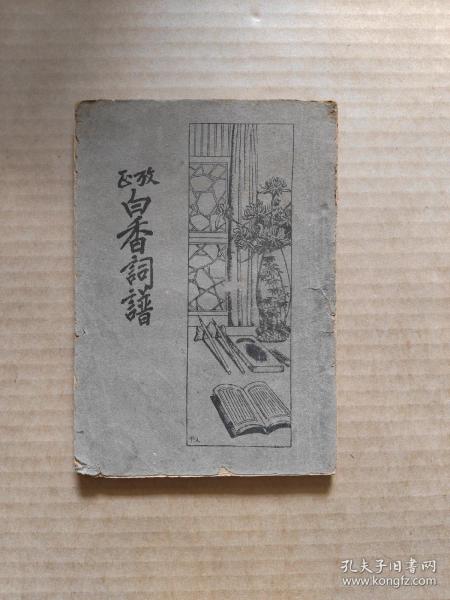 攷正
白香詞譜
孔夫子旧书网
www.kongfz.com